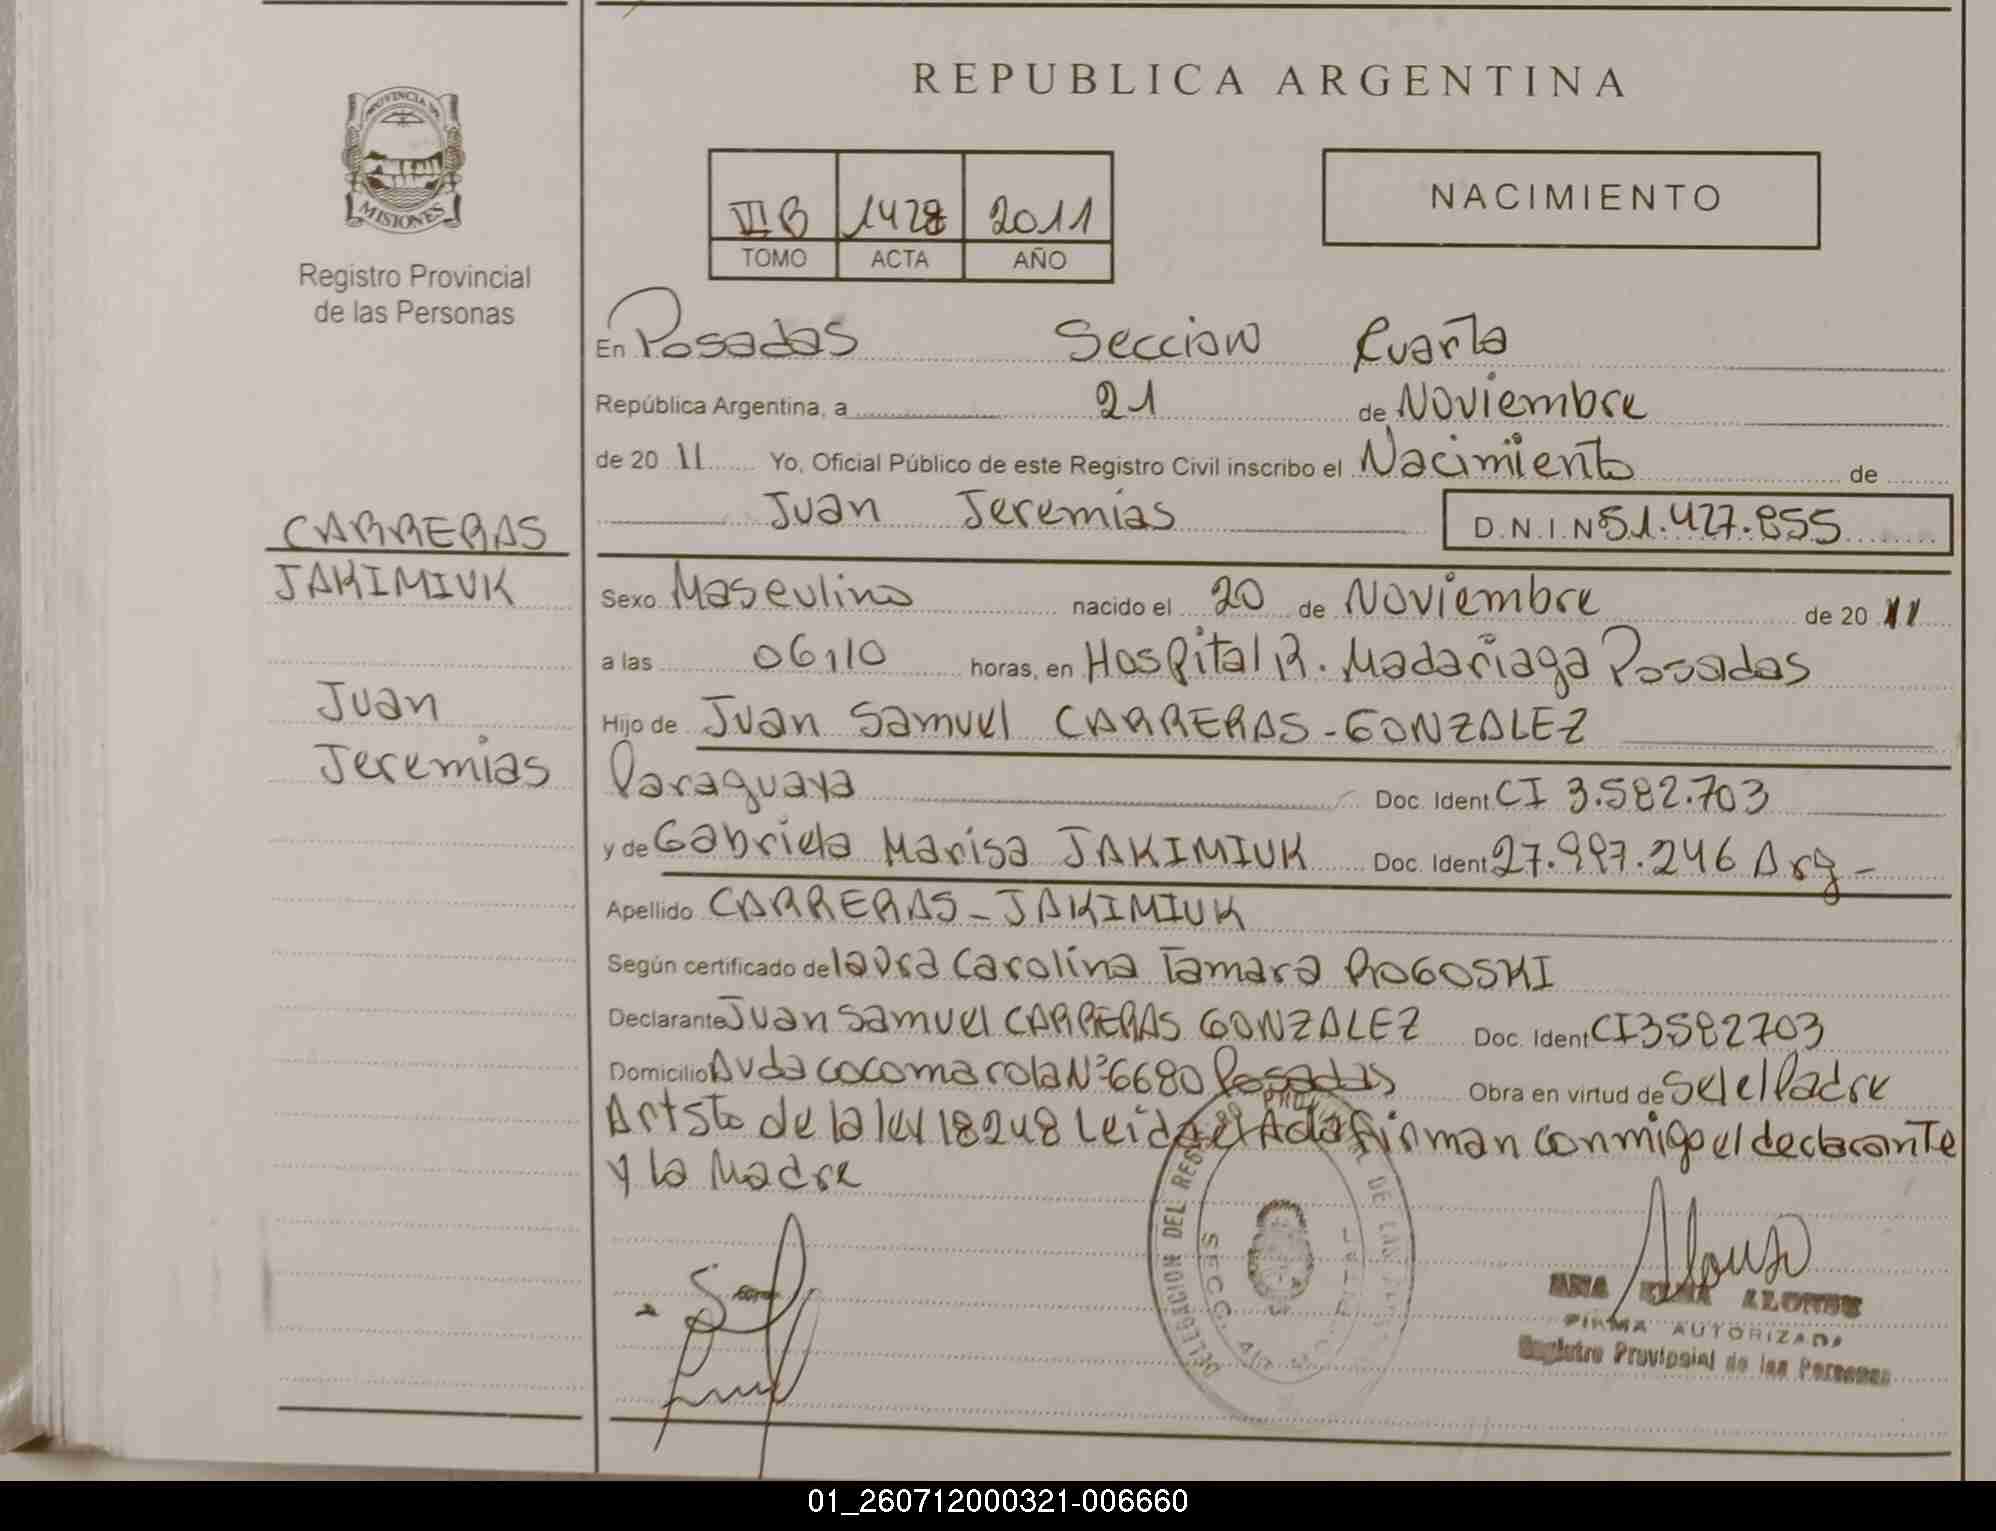 REPUBLICA ARGENTINA
PROVINCIA DE
MISIONES
Registro Provincial
de las Personas
VII B 1428 2011
TOMO ACTA AÑO
NACIMIENTO
En Posadas Seccion Cuarta
República Argentina, a 21 de Noviembre
de 20 11 Yo, Oficial Público de este Registro Civil inscribo el Nacimiento de
Juan Jeremias D.N.I.N 51.427.855
CARRERAS
JAKIMIUK
Juan
Jeremias
Sexo Masculino nacido el 20 de Noviembre de 20 11
a las 06,10 horas, en Hospital R. Madariaga Posadas
Hijo de Juan Samuel CARRERAS - GONZALEZ
Paraguaya Doc. Ident CI 3.582.703
y de Gabriela Marisa JAKIMIUK Doc. Ident 27.997.246 Arg -
Apellido CARRERAS - JAKIMIUK
Según certificado de laura Carolina Tamara ROGOSKI
Declarante Juan Samuel CARRERAS GONZALEZ Doc. Ident CI 3582703
Domicilio Avda cocomarola Nº 6680 Posadas Obra en virtud de Ser el Padre
Art 5to de la ley 18248 Leida el Acta firman conmigo el declarante
y la Madre
DELEGACION DEL REG DE LAS
SECC.
Alonso
ALONSO
FIRMA AUTORIZADA
Registro Provincial de las Personas
01_260712000321-006660